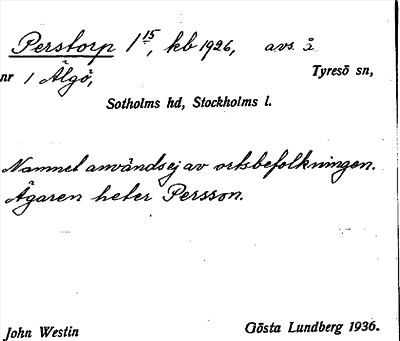 Perstorp 1 15, kb 1926, avs. å
nr 1 Älgö, Tyresö sn,
Sotholms hd, Stockholms l.
Namnet användes ej av ortsbefolkningen.
Ägaren heter Persson.
John Westin Gösta Lundberg 1936.